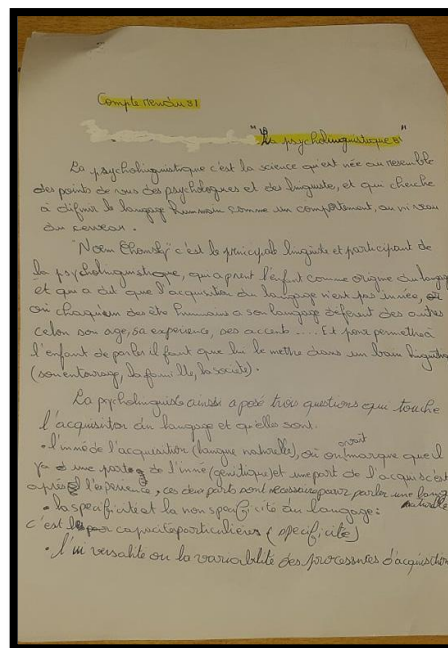 Compte rendu 81
" La psycholinguistique 8"
La psycholinguistique c'est la science qui est née au
des points de vus des psychologues et des linguiste, et qui cherche
à difinir le langage humain comme un comportement, au niveau
du cerveau.
Noem Chomsky c'est le principale linguiste et participant de
la psycholinguistique, qui a prent l'enfant comme origine du langage
et qui a dit que l'acquisition du langage n'est pas innée, où
où chaqu'un des être humains a son langage déferent des autres
celon son age, sa experience, ses accents.... Et pour permettre à
l'enfant de parler il faut que lui le mettre dans un bain linguistique
(son entourage, la famille, la société).
La psycholinguiste aussi a posé trois questions qui touche
l'acquisiton du langage et qu'elle sont:
• l'inné de l'acquisition (langue naturelle), où on marque que il
ya une partie de l'inné (génitique) et une part de l'acquis c'est
après l'éxperience, ces deux parts sont necessaire pour parler une langue
naturelle
• la specificité et la non specificité du langage:
c'est capacité particulières (spécificité)
• l'universalité ou la variabilité des processures d'acquisition